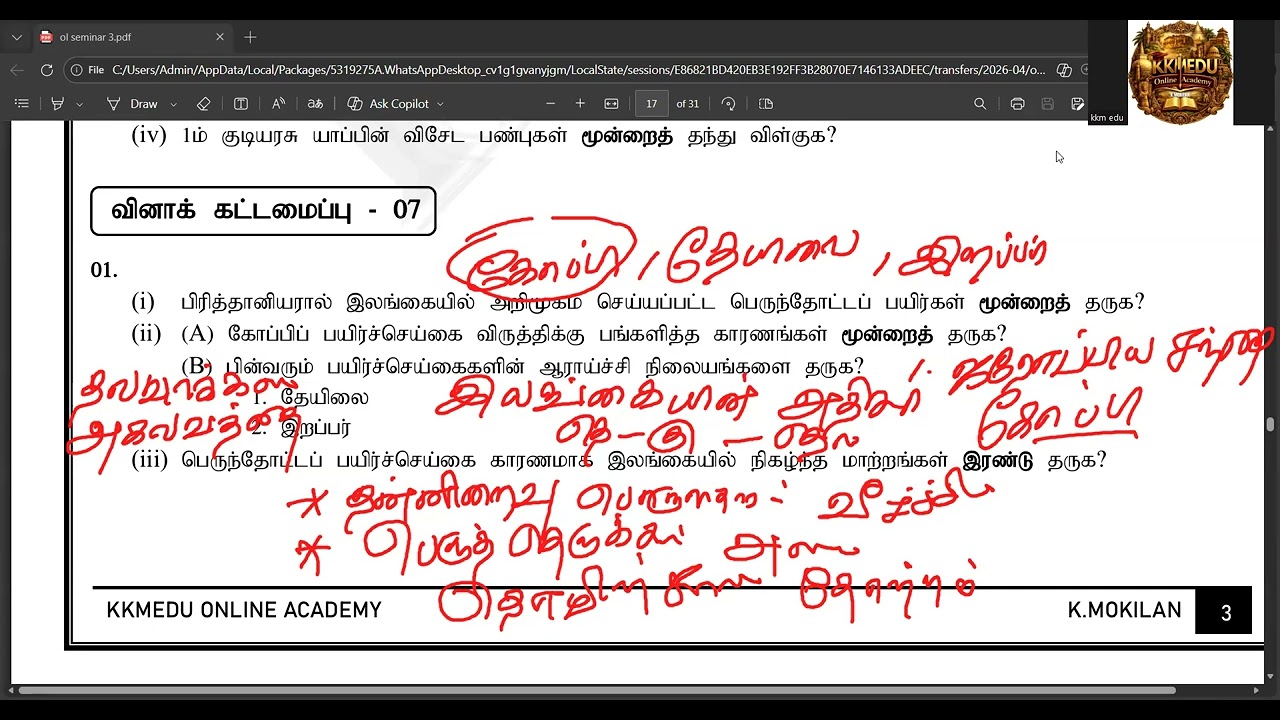 ol seminar 3.pdf
File C:/Users/Admin/AppData/Local/Packages/5319275A.WhatsAppDesktop_cv1g1gvanyjgm/LocalState/sessions/E86821BD420EB3E192FF3B28070E7146133ADEEC/transfers/2026-04/o...
Draw Ask Copilot 17 of 31
KKMEDU
Online Academy
kkm edu
(iv) 1ம் குடியரசு யாப்பின் விசேட பண்புகள் மூன்றைத் தந்து விள்குக?
வினாக் கட்டமைப்பு - 07
கோப்பி / தேயிலை , இறப்பர்
01.
(i) பிரித்தானியரால் இலங்கையில் அறிமுகம் செய்யப்பட்ட பெருந்தோட்டப் பயிர்கள் மூன்றைத் தருக?
(ii) (A) கோப்பிப் பயிர்ச்செய்கை விருத்திக்கு பங்களித்த காரணங்கள் மூன்றைத் தருக?
(B) பின்வரும் பயிர்ச்செய்கைகளின் ஆராய்ச்சி நிலையங்களை தருக?
1. ஐரோப்பிய சந்தை
கோப்பி
தலவாக்கலை
1. தேயிலை
இலங்கையின் அதிகார்
அகலவத்தை
2. இறப்பர்
(iii) பெருந்தோட்டப் பயிர்ச்செய்கை காரணமாக இலங்கையில் நிகழ்ந்த மாற்றங்கள் இரண்டு தருக?
* தன்னிறைவு பொருளாதார வீழ்ச்சி
* பெருந்தெருக்கள்
தோற்றம்
KKMEDU ONLINE ACADEMY K.MOKILAN 3